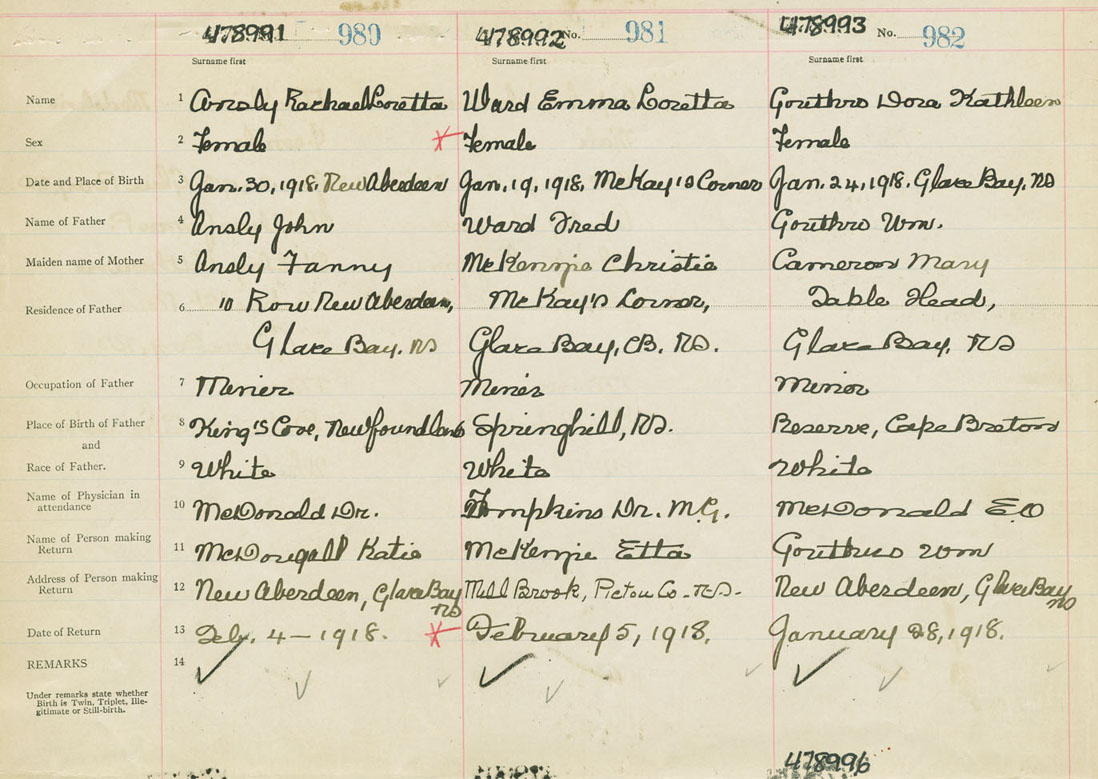 478991 980 478992 No. 981 478993 No. 982
Surname first Surname first Surname first
Name 1 Ansly Rachael Loretta Ward Emma Loretta Gouthro Dora Kathleen
Sex 2 Female Female Female
Date and Place of Birth 3 Jan. 30, 1918. New Aberdeen Jan. 19, 1918. McKay's Corner Jan. 24, 1918. Glace Bay, NS
Name of Father 4 Ansly John Ward Fred Gouthro Wm.
Maiden name of Mother 5 Ansly Fanny McKenzie Christie Cameron Mary
Residence of Father 6 10 Row New Aberdeen, McKay's Corner, Table Head,
Glace Bay, NS Glace Bay, CB. NS. Glace Bay, NS
Occupation of Father 7 Miner Miner Minor
Place of Birth of Father 8 King's Cove, Newfoundland Springhill, NS. Reserve, Cape Breton
and
Race of Father. 9 White White White
Name of Physician in
attendance 10 McDonald Dr. Tompkins Dr. M.G. McDonald E.O
Name of Person making
Return 11 McDougall Katie McKenzie Etta Gouthro Wm
Address of Person making
Return 12 New Aberdeen, Glace Bay NS Mill Brook, Pictou Co. N.S. New Aberdeen, Glace Bay NS
Date of Return 13 Feb. 4 - 1918. February 5, 1918. January 28, 1918.
REMARKS 14
Under remarks state whether
Birth is Twin, Triplet, Ille-
gitimate or Still-birth.
478996